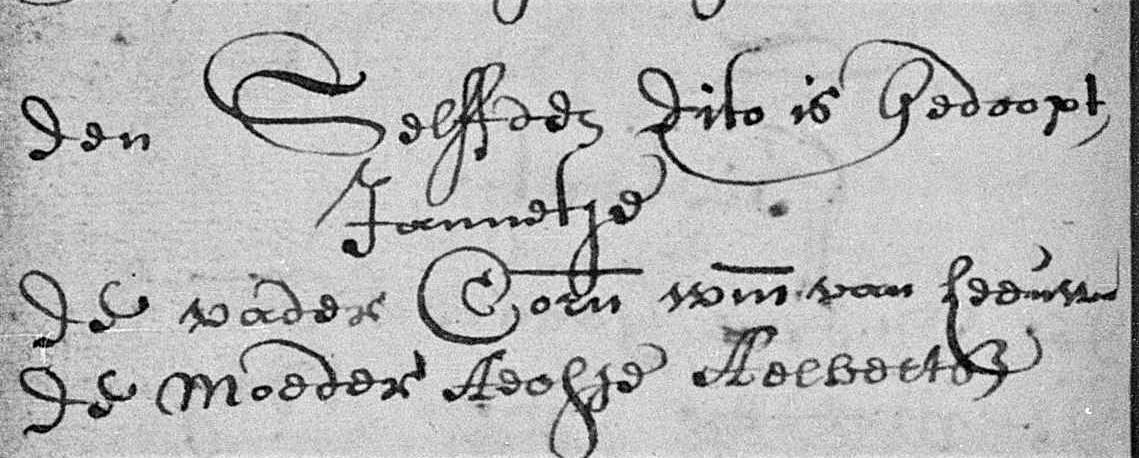 den Selffden dito is Gedoopt
Jannetje
De vader Corn wm van Leeuw
De Moeder Aeghje Aelberts